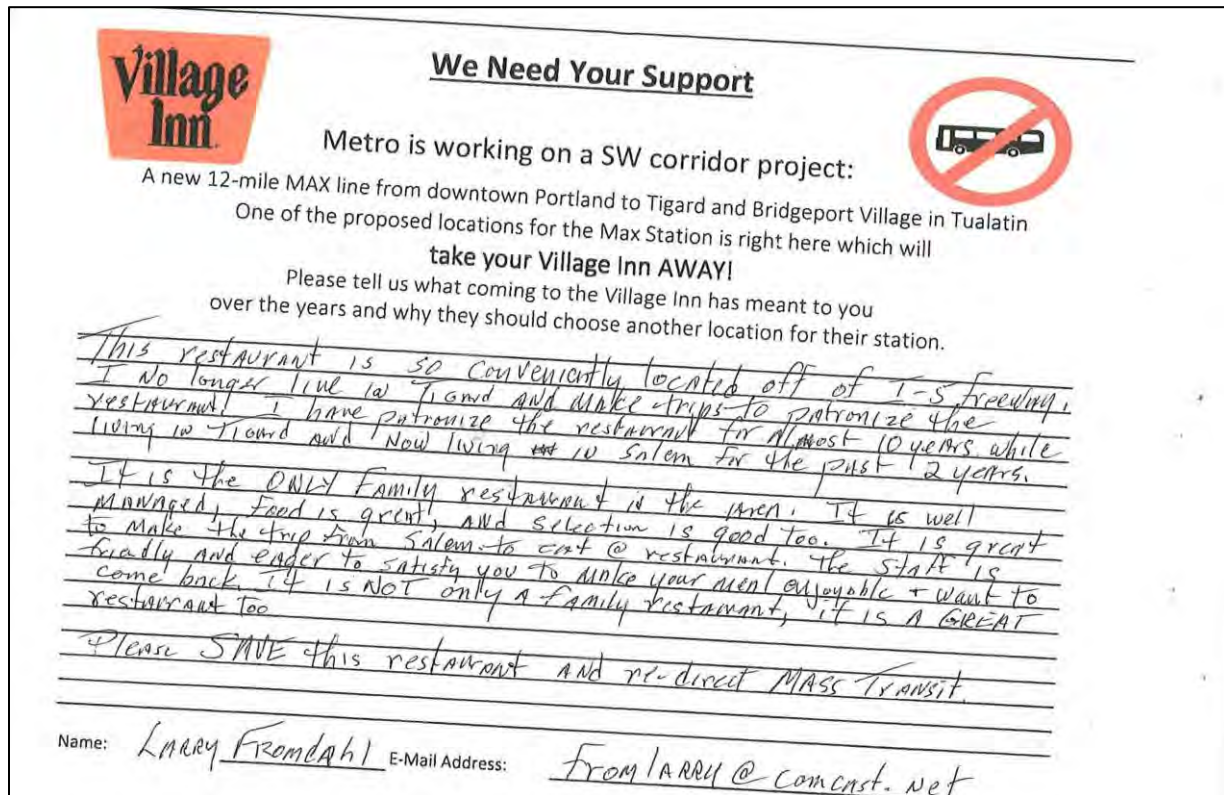 Village
Inn
We Need Your Support
Metro is working on a SW corridor project:
A new 12-mile MAX line from downtown Portland to Tigard and Bridgeport Village in Tualatin
One of the proposed locations for the Max Station is right here which will
take your Village Inn AWAY!
Please tell us what coming to the Village Inn has meant to you
over the years and why they should choose another location for their station.
This restaurant is so conveniently located off of I-5 freeway.
I no longer live in Tigard and make trips to patronize the
restaurant. I have patronize the restaurant for almost 10 years while
living in Tigard and now living in Salem for the past 2 years.
It is the ONLY family restaurant in the area. It is well
managed, food is great, and selection is good too. It is great
to make the trip from Salem to eat @ restaurant. The staff is
friendly and eager to satisfy you to make your meal enjoyable + want to
come back. It is NOT only a family restaurant, it is a GREAT
restaurant too
Please SAVE this restaurant and re-direct MASS Transit.
Name: Larry Fromdahl E-Mail Address: fromlarry@comcast.net